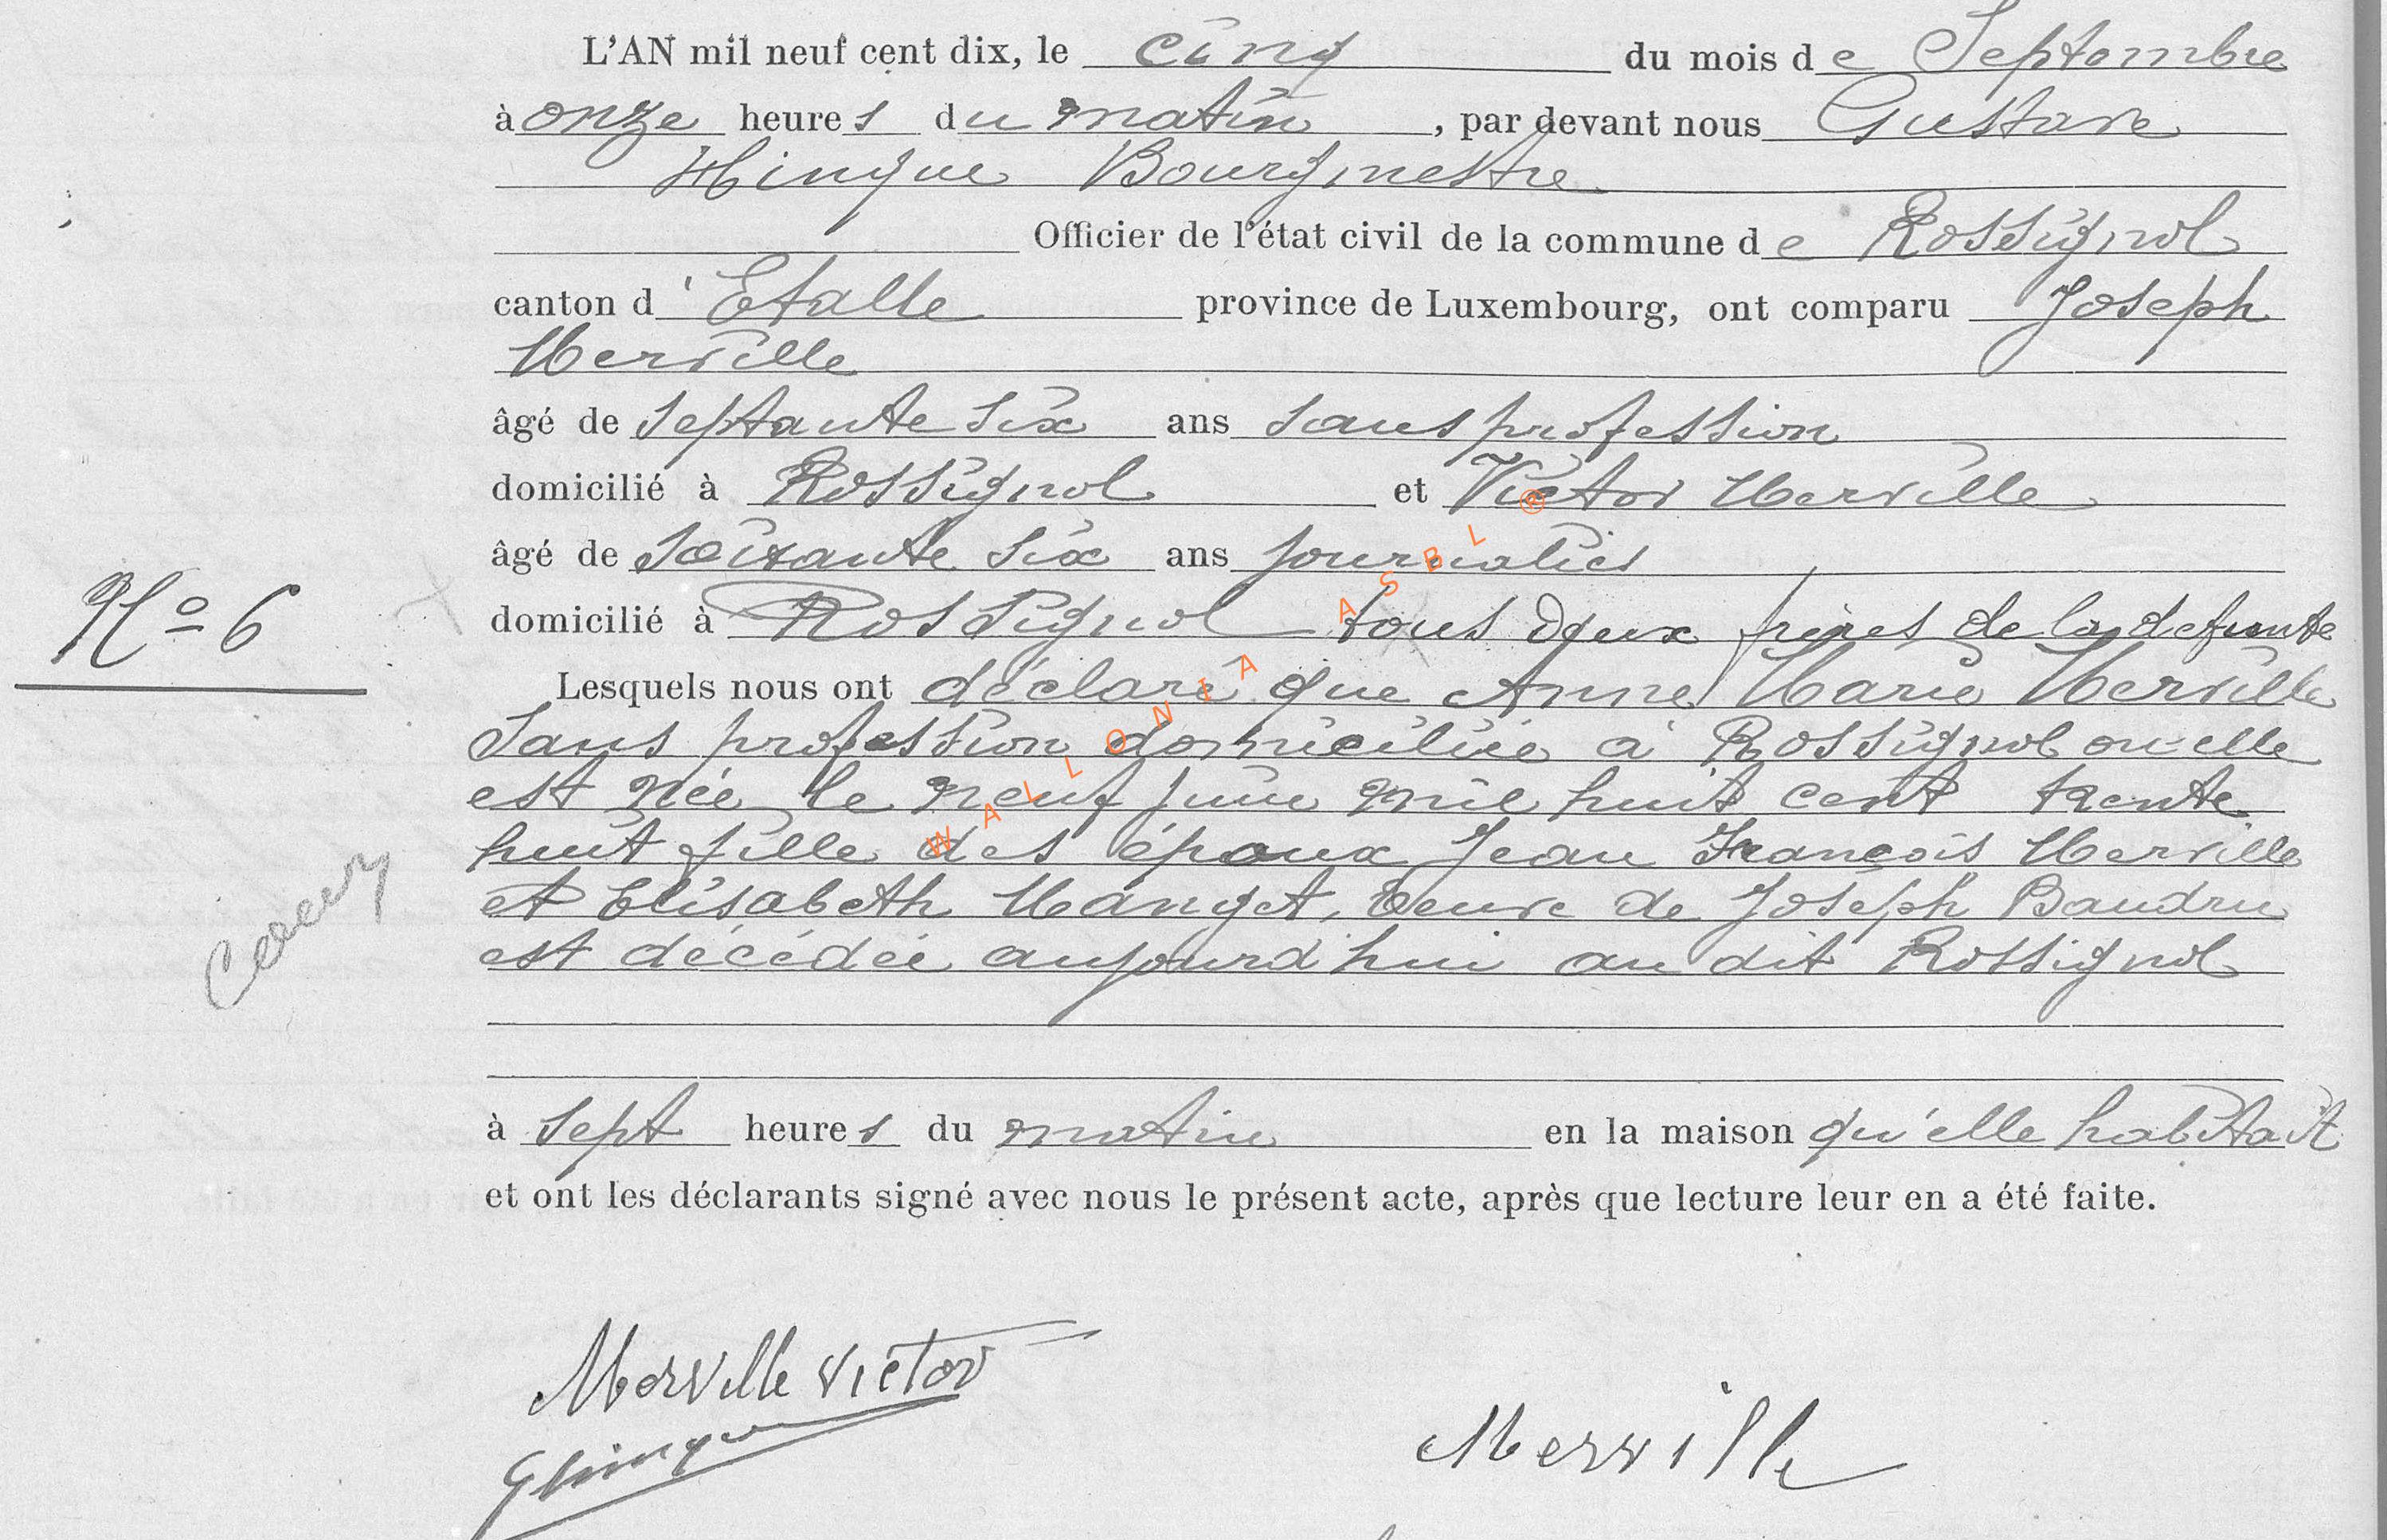 L'AN mil neuf cent dix, le cinq du mois de Septembre
à onze heures du matin, par devant nous Gustave
Hinque Bourgmestre
Officier de l'état civil de la commune de Rossignol
canton d'Etalle province de Luxembourg, ont comparu Joseph
Merville
âgé de septante six ans sans profession
domicilié à Rossignol et Victor Merville
âgé de soixante six ans journalier
domicilié à Rossignol tous deux frères de la defunte
Nº 6
Lesquels nous ont déclaré que Anne Marie Merville
sans profession domiciliée à Rossignol ou elle
est née le neuf juin mil huit cent trente
huit fille des époux Jean François Merville
et Elisabeth Manget, veuve de Joseph Baudru
est décédée aujourd'hui au dit Rossignol
à sept heures du matin en la maison qu'elle habitait
et ont les déclarants signé avec nous le présent acte, après que lecture leur en a été faite.
Merville Victor
GHinque
Merville
WALLONIA ASBL ®